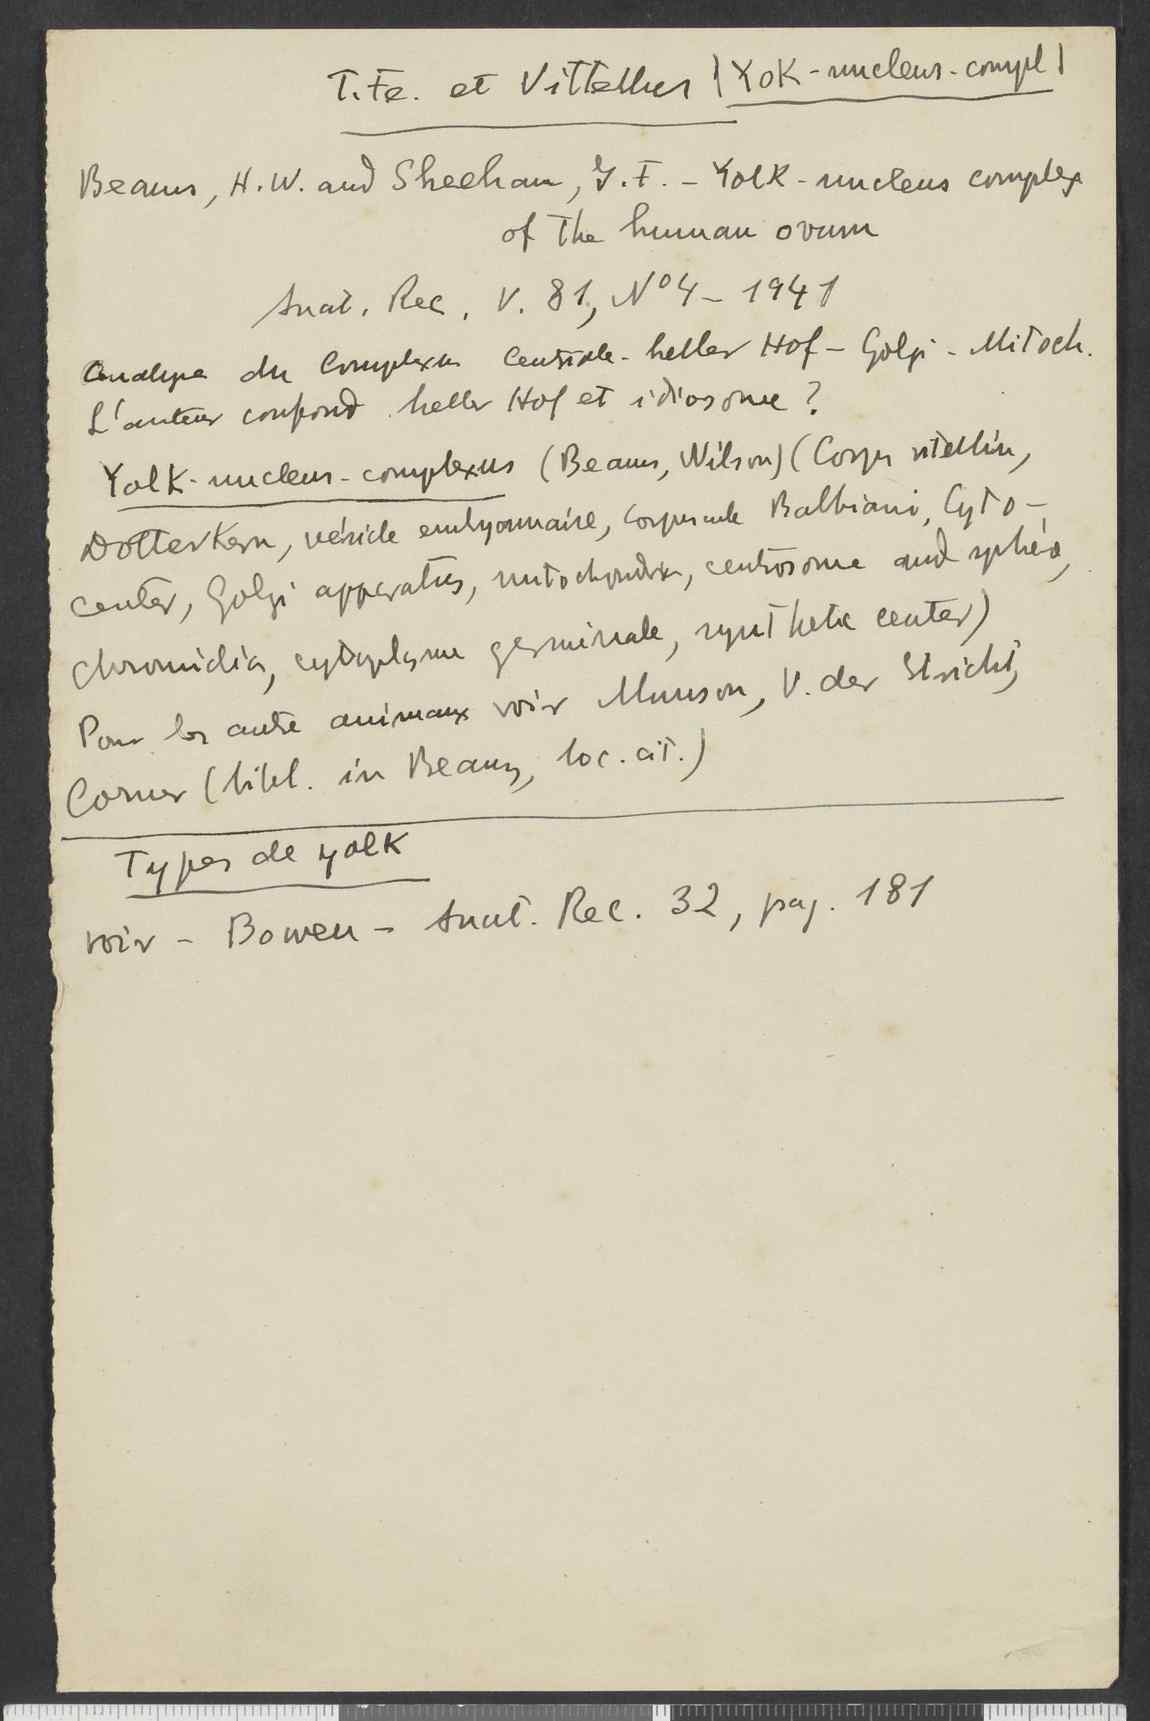 T. Fe. et Vittellus (Yolk-nucleus-compl)
Beams, H.W. and Sheehan, J.F. - Yolk-nucleus complex
of the human ovum
Anat. Rec. V. 81, Nº 4 - 1941
Analyse du Complexus Centriole - heller Hof - Golgi - Mitoch.
L'auteur confond heller Hof et idiosome ?
Yolk-nucleus-complexus (Beams, Wilson) (Corps vitellin,
Dotterkern, vésicle embryonnaire, corpuscule Balbiani, Cyto-
center, Golgi apparatus, mitochondria, centrosome and sphere,
chromidia, cytoplasme germinale, synthetic center)
Pour les autre animaux voir Munson, V. der Stricht,
Corner (bibl. in Beams, loc. cit.)
Types de yolk
voir - Bowen - Anat. Rec. 32, pag. 181